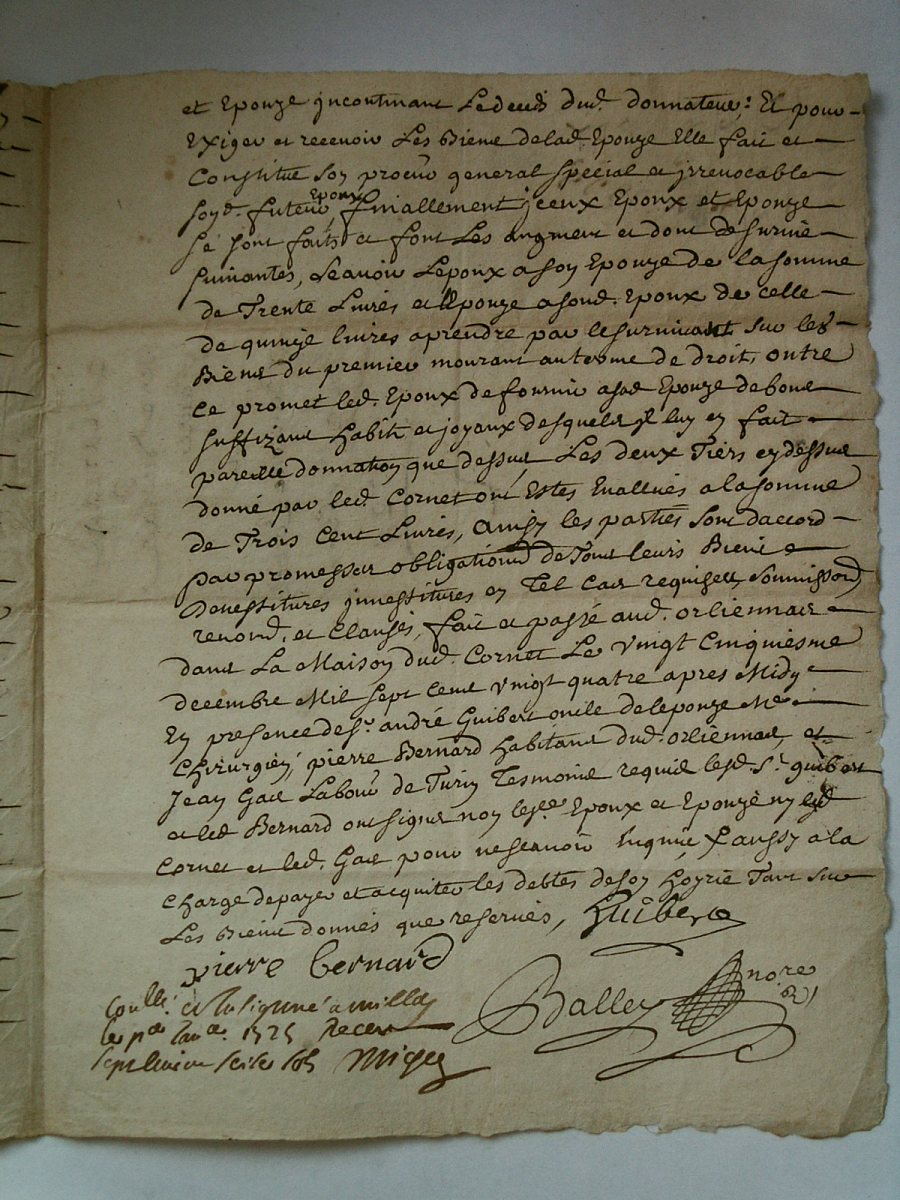 et Epouze jncontinant Le deceds dud. donnateur; Et pour
Exiger et recevoir Les Biens de lad. Epouze Elle fait et
Constitue Son procur general special et jrrevocable
Sond. futeur Epoux, finallement jceux Epoux et Epouze
se sont faits et font Les augment et dont de survie
suivantes, scavoir Lepoux a son Epouze de la somme
de Trente Livres et Lepouze a sond. Epoux de celle
de quinze livres a prendre par le survivant sur les
Biens du premier mourant au terme de droit, outre
ce promet led. Epoux de fournir a sad Epouze de bons
suffizans habits et joyaux desquels jl luy en fait
pareille donnation que dessus Les deux Tiers cy dessus
donné par led. Cornet ont Estes Evallués a la somme
de Trois Cent Livres, Ainsy les parties sont d'accord
par promesses obligations de Tous leurs Biens
devestitures jnvestitures en Tel cas requises, soumissons,
renond. et Clauses, fait et passé aud. orliennas
dans La Maison dud. Cornet Le Vingt Cinquiesme
decembre Mil sept Cens Vingt quatre apres Midy
En presence de sr. andré Guibert oncle de lepouze Me
Chirurgien, pierre Bernard habitans dud. orliennas, et
Jean Gas Labour de Turin Tesmoins requis lesd. Sr. guibert
et led Bernard ont signé non lesd. Epoux et Epouze ny led
Cornet et led. Gas pour ne scavoir Enquis, & aussy a la
charge de payer et acquiter les debtes de son hoyrie Tant sur
Les Biens donnés que reservés, Guibert
pierre bernard
Balley nore
Conllé et Insignué a milly
le pr Janr. 1725 Recu
sept livres seise sols